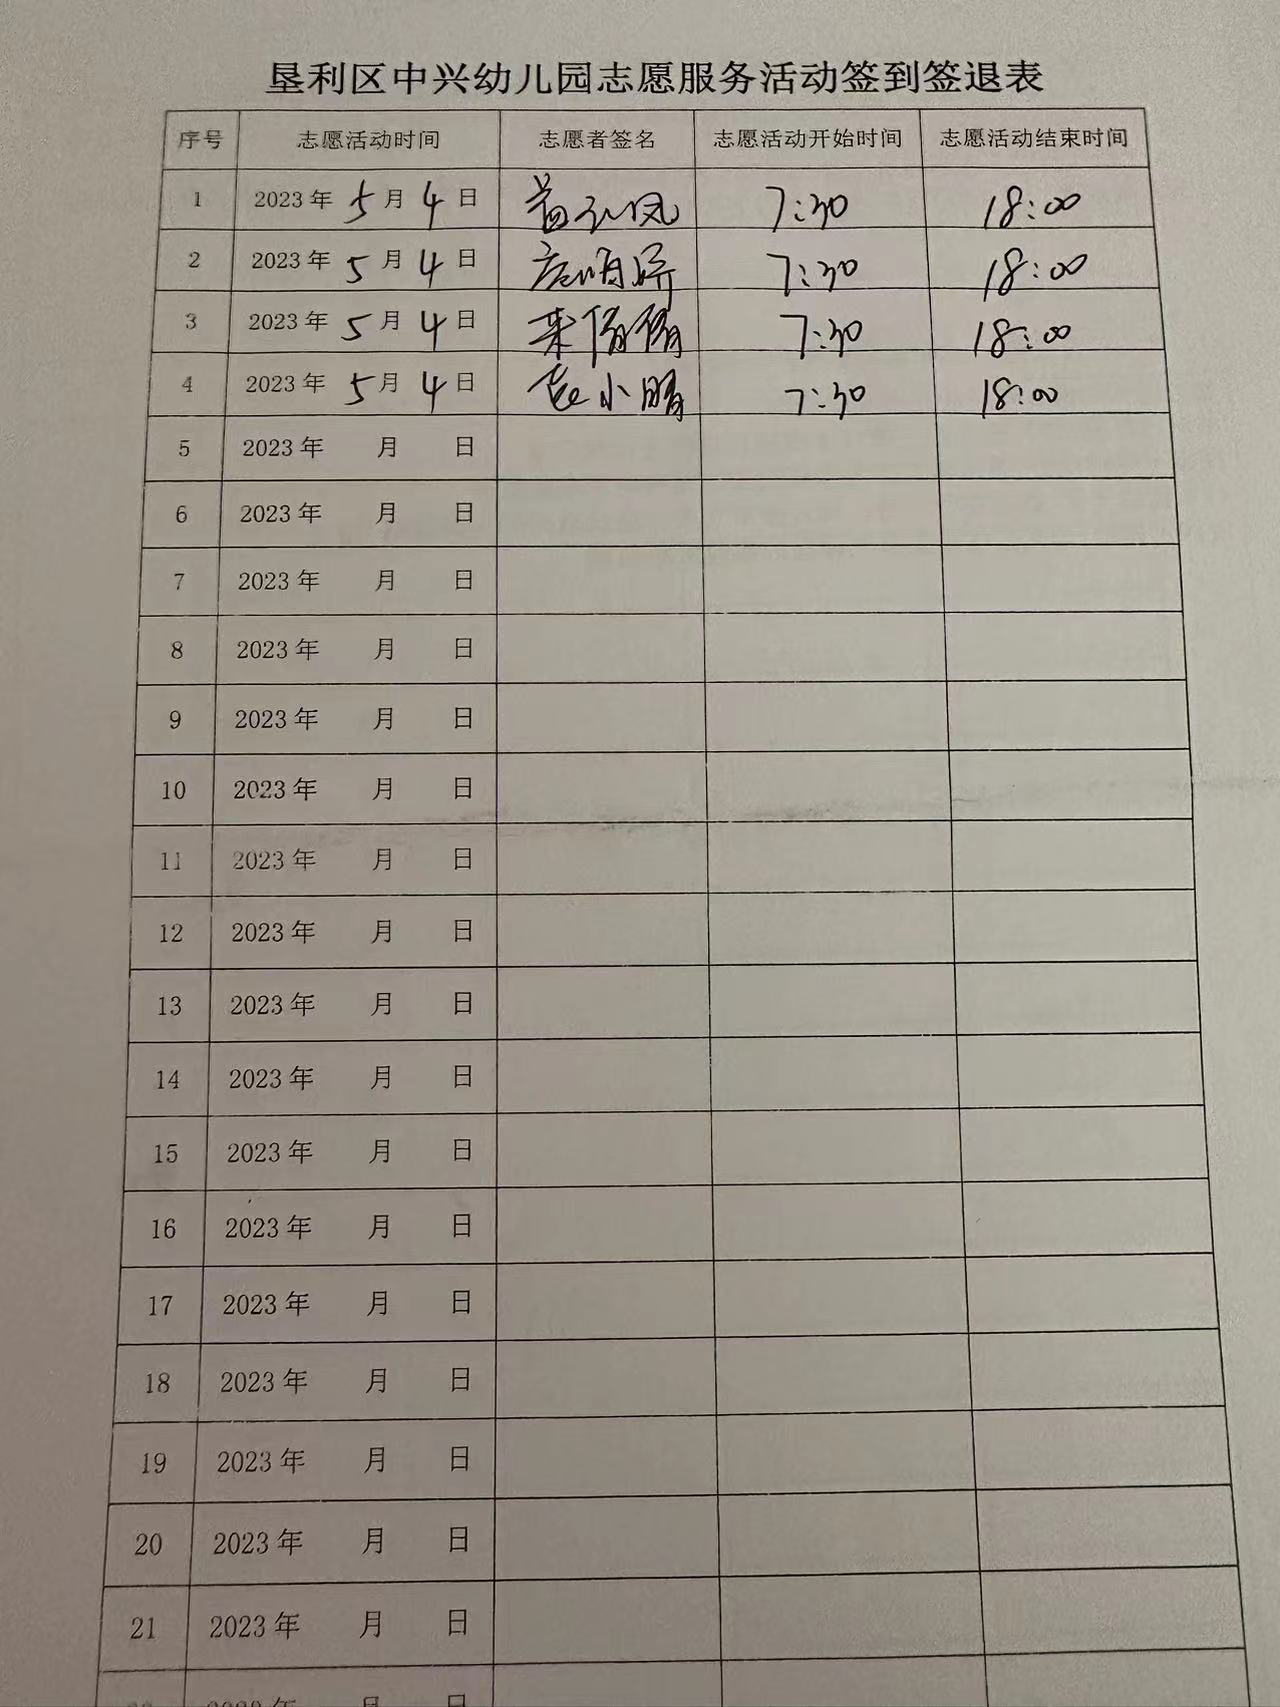 垦利区中兴幼儿园志愿服务活动签到签退表
序号 志愿活动时间 志愿者签名 志愿活动开始时间 志愿活动结束时间
1 2023年 5月 4日 7:30 18:00
2 2023年 5月 4日 7:30 18:00
3 2023年 5月 4日 来倩倩 7:30 18:00
4 2023年 5月 4日 袁小晴 7:30 18:00
5 2023年 月 日
6 2023年 月 日
7 2023年 月 日
8 2023年 月 日
9 2023年 月 日
10 2023年 月 日
11 2023年 月 日
12 2023年 月 日
13 2023年 月 日
14 2023年 月 日
15 2023年 月 日
16 2023年 月 日
17 2023年 月 日
18 2023年 月 日
19 2023年 月 日
20 2023年 月 日
21 2023年 月 日